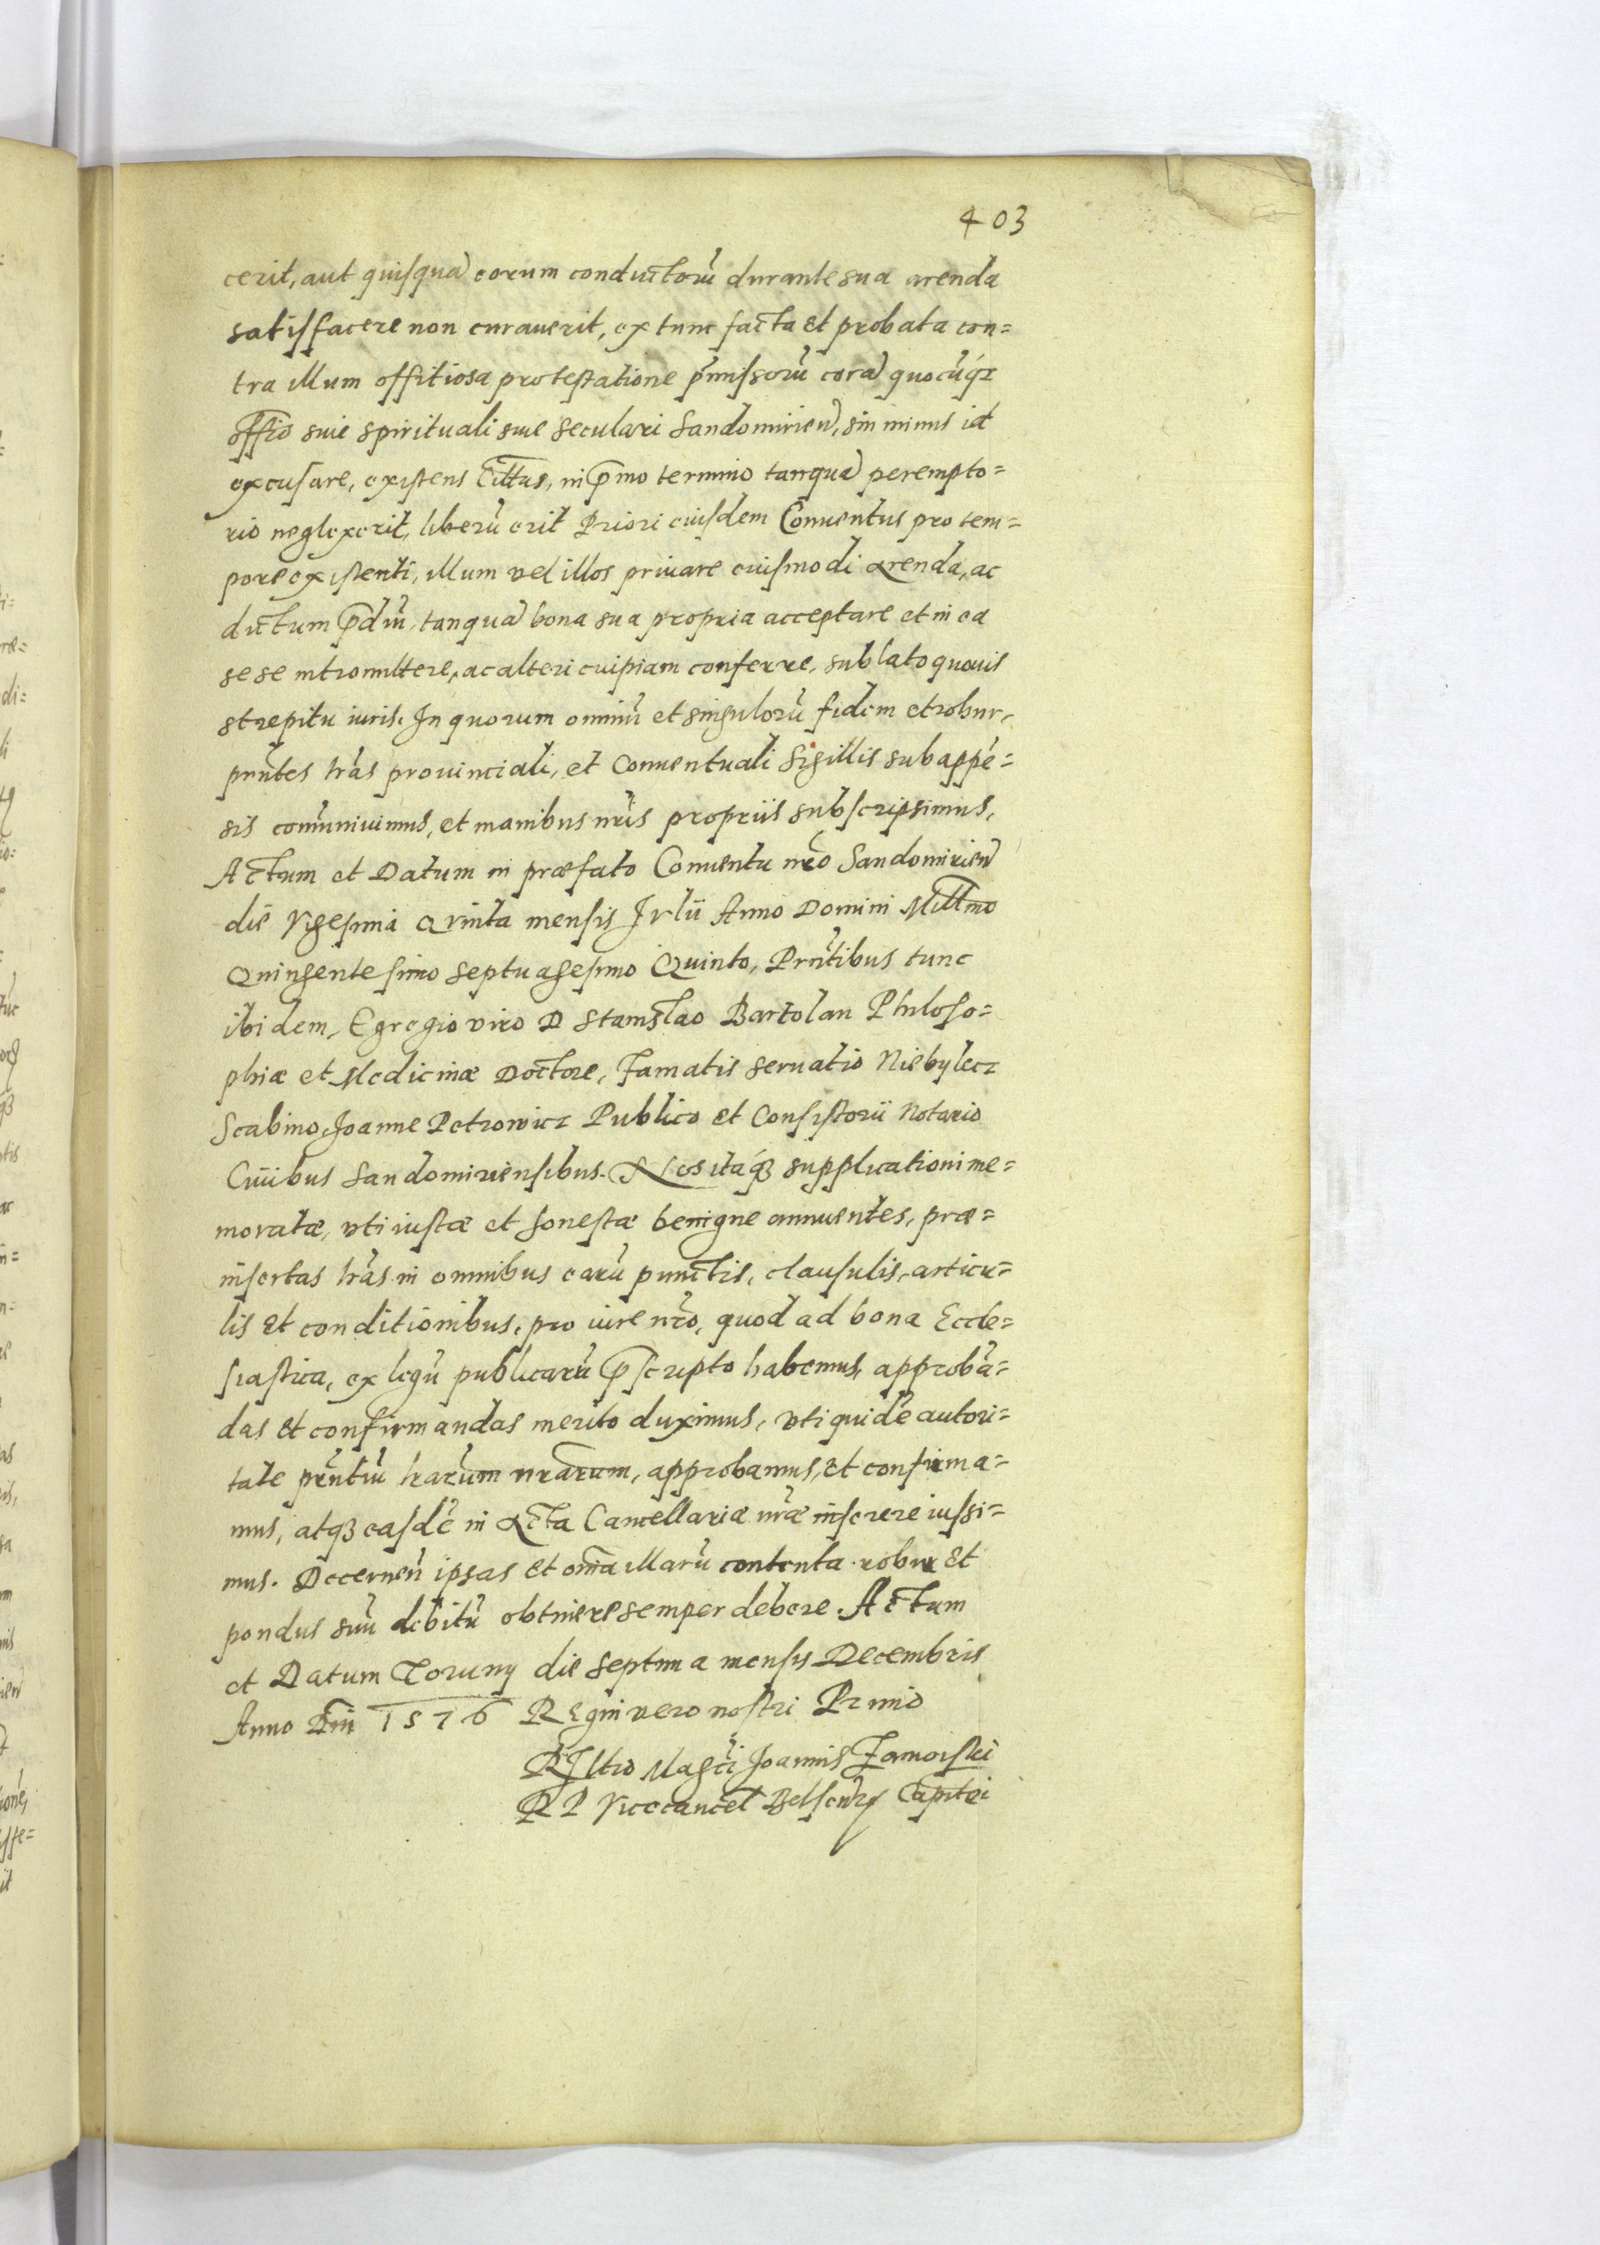 403
cerit, aut quisquā eorum conductorū durante sua arenda
satisfacere non curauerit, ex tunc facta et probata con=
tra illum offitiosa protestatione pr̄missorū corā quocūq́z
offio siue spirituali siue seculari Sandomirieñ, sin minus id
excusare, existens cittus, in p̄mo termino tanquā perempto=
rio neglexerit, liberū erit Priori eiusdem Conuentus pro tem=
pore existenti, illum vel illos priuare eiusmodi Arenda, ac
dictum p̄diū, tanquā bona sua propria acceptare et in ea
sese intromittere, ac alteri cuipiam conferre, sublato quouis
strepitu iuris. In quorum omniū et singulorū fidem et robur,
pñtes lr̄as prouinciali, et Conuentuali Sigillis subappē=
sis com̄uniuimus, et manibus nr̄is propriis subscripsimus,
Actum et Datum in præfato Conuentu nr̄o Sandomirieñ
die Vigesima Qvinta mensis Jvlii Anno Domini Millmo
Quingentesimo Septuagesimo Quinto, Prñtibus tunc
ibidem, Egregio viro D Stanislao Bartolan Philoso=
phiæ et Medicinæ Doctore, Famatis Seruatio Niebylecz
Scabino, Joanne Petrowicz Publico et Consistorii Notario
Ciuibus Sandomiriensibus. Nos itaq́ȝ supplicationi me=
moratæ, vti iustæ et honestæ benigne annuentes, præ=
insertas lr̄as in omnibus earū punctis, clausulis, articu=
lis et conditionibus, pro iure nr̄o, quod ad bona Eccle=
siastica, ex legū publicarū p̄scripto habemus, approbā=
das et confirmandas merito duximus, vti quidē autori=
tate prñtiū lrarum nrarum, approbamus, et confirma=
mus, atqȝ easdē in Acta Cancellariæ nr̄æ inserere iussi=
mus. Decerneñ ipsas et om̄ia illarū contenta robur et
pondus suū debitū obtinere semper debere. Actum
et Datum Toruny die Septima mensis Decembris
Anno Dn̄i 1576 Regni vero nostri Primo
R Jllrio Magci Joannis Zamoiski
R P Vicecancel Belseñ ȝ Capitei